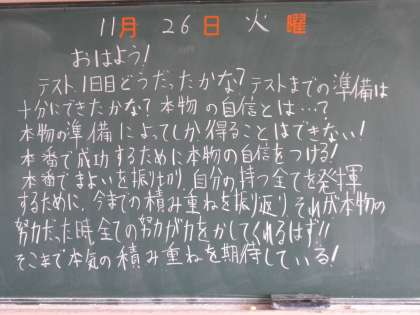 11月 26日 火 曜
おはよう!
テスト1日目どうだったかな?テストまでの準備は
十分にできたかな?本物の自信とは…?
本物の準備によってしか得ることはできない!
本番で成功するために本物の自信をつける!
本番でまよいを振り切り、自分の持つ全てを発揮
するために、今までの積み重ねを振り返り、それが本物の
努力だった時、全ての努力が力をかしてくれるはず!!
そこまで本気の積み重ねを期待している!